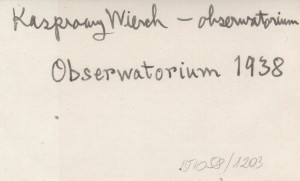 Kasprowy Wierch – obserwatorium
Obserwatorium 1938